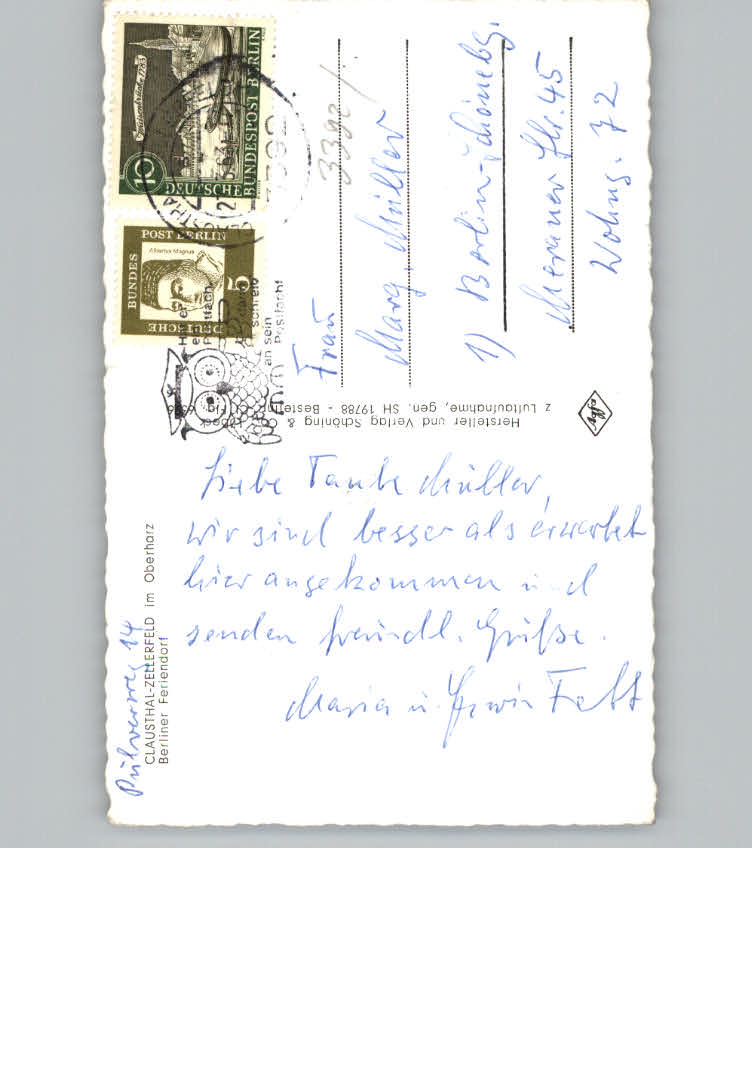 Liebe Tante Müller,
wir sind besser als erwartet
hier angekommen und
senden freundl. Grüße.
Maria u. Erwin
Pulverweg 14
CLAUSTHAL-ZELLERFELD im Oberharz
Berliner Feriendorf
Hersteller und Verlag Schöning & Co., Lübeck
z Luftaufnahme, gen. SH 19788 - Bestellnr.
Agfa
Frau
Marg. Müller
1) Berlin-Schönebg.
Meraner Str. 45
Wohng. 72
3392/
10
DEUTSCHE
BUNDESPOST BERLIN
1783
5
DEUTSCHE
BUNDES
POST BERLIN
Albertus Magnus
3392
Postfach
schreib
an sein
Postfach!